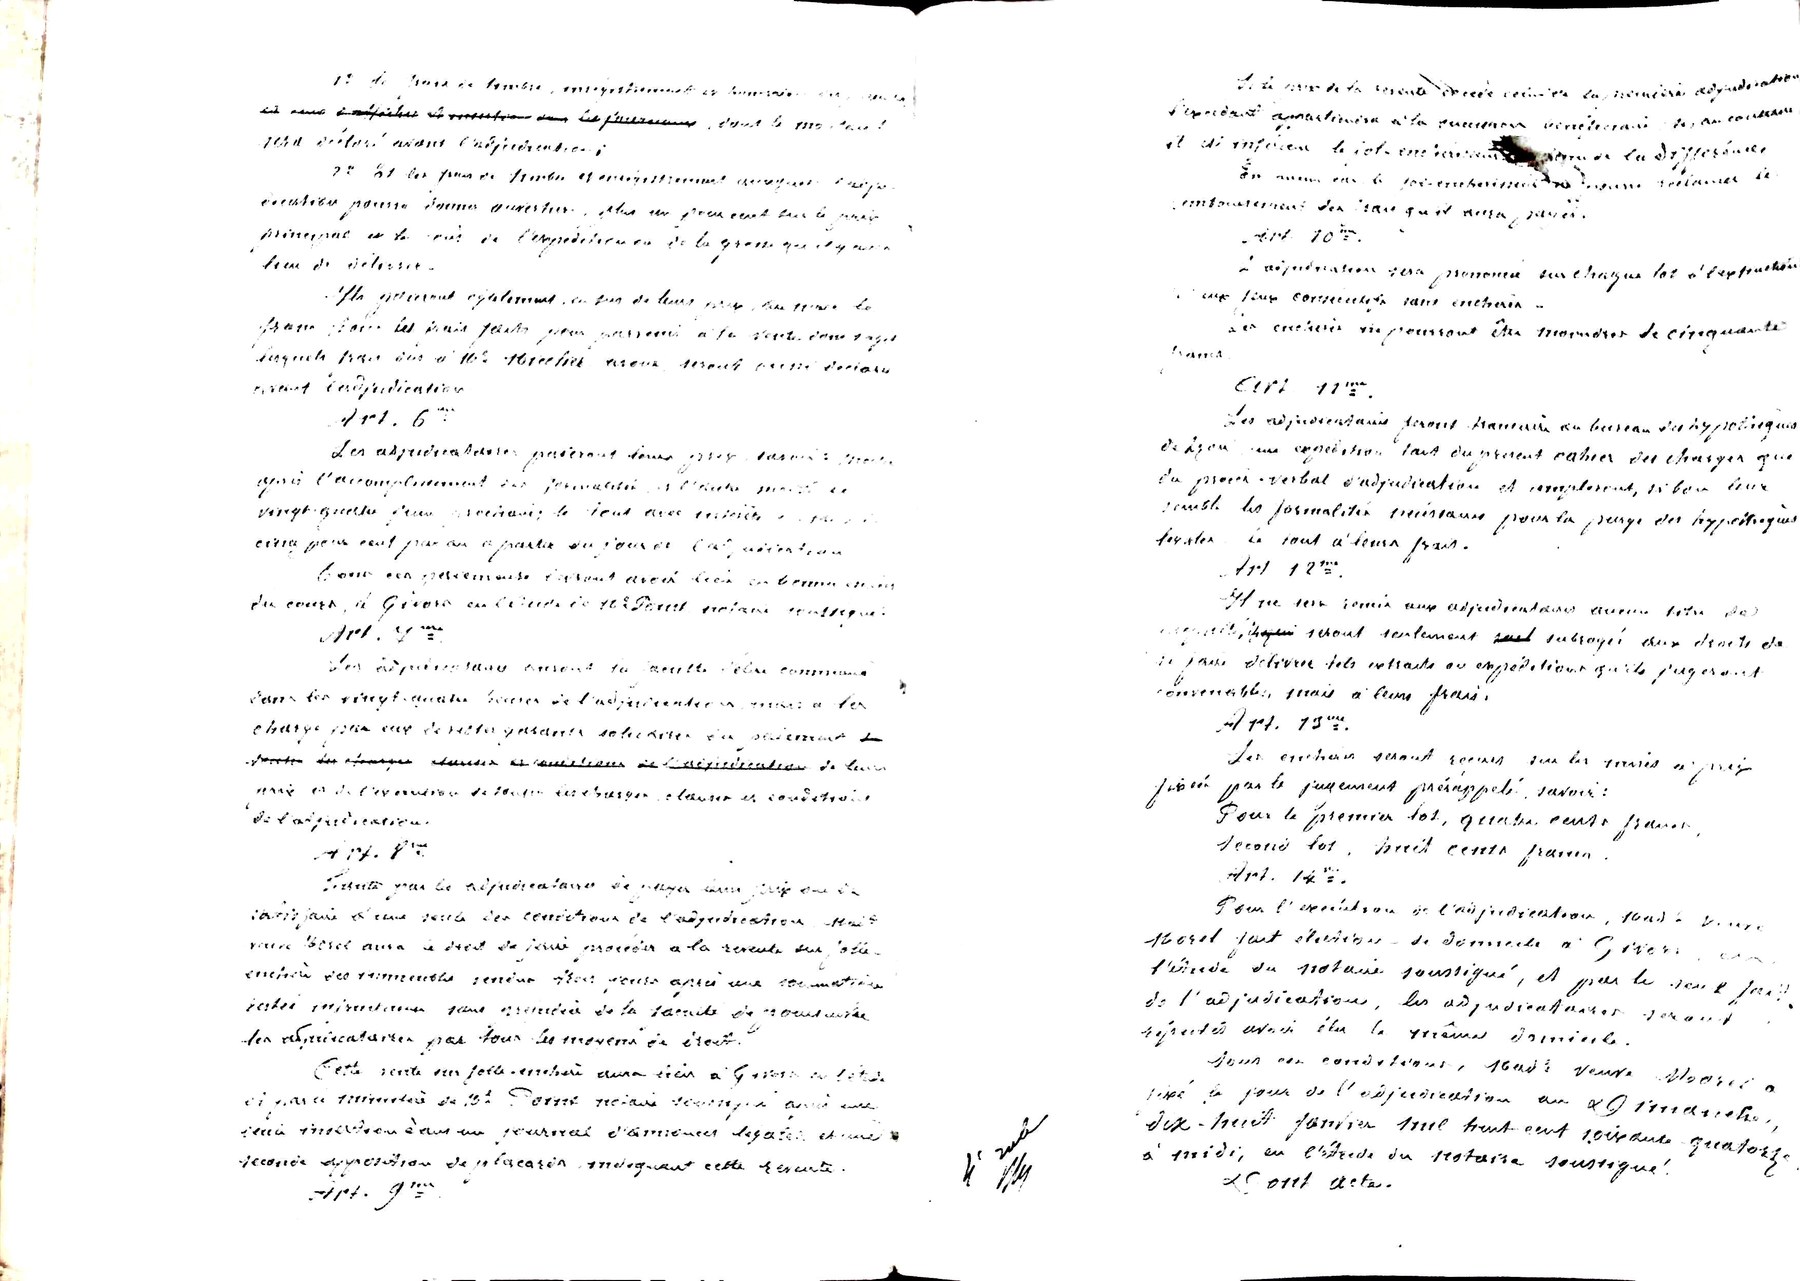 1º de frais de timbre, enregistrement et honoraires
et ceux d'affiches et insertion dans les journaux, dont le montant
sera déclaré avant l'adjudication;
2º Et les frais de timbre et enregistrement auxquels l'adju-
dication pourra donner ouverture, plus un pour cent sur le prix
principal et le coût de l'expédition ou de la grosse qu'il y aura
lieu de délivrer.
Ils payeront également, en sus de leurs prix, au marc le
franc les frais faits pour parvenir à la vente dont s'agit
lesquels frais dûs à Me avoué, seront aussi déclarés
avant l'adjudication
Art. 6me
Les adjudicataires paieront leurs prix, savoir: moitié
après l'accomplissement des formalités et l'autre moitié
vingt-quatre juin prochain, le tout avec intérêts
cinq pour cent par an à partir du jour de l'adjudication
Tous ces paiements devront avoir lieu en bonnes espèces
du cours, à Givors en l'étude de Me Point notaire soussigné.
Art. 7me
Les adjudicataires auront la faculté d'élire command
dans les vingt-quatre heures de l'adjudication, mais à la
charge par eux de rester garants solidaires du paiement de
toutes les charges clauses et conditions de l'adjudication de leurs
prix et de l'exécution de toutes les charges, clauses et conditions
de l'adjudication.
Art. 8me
Faute par les adjudicataires de payer leurs prix ou de
satisfaire à une seule des conditions de l'adjudication, Made
veuve Morel aura le droit de faire procéder à la revente sur folle-
enchère des immeubles vendus jours après une sommation
restée infructueuse sans préjudice de la faculté de poursuivre
les adjudicataires par tous les moyens de droit.
Cette vente sur folle-enchère aura lieu à Givors en l'étude
et par le ministère de Me Point notaire soussigné après une
seule insertion dans un journal d'annonces légales, et une
seconde apposition de placards indiquant cette revente.
Art. 9me
Si le prix de la revente excède celui de la première adjudication
l'excédant appartiendra à la succession bénéficiaire; si, au contraire
il est inférieur, le fol-enchérisseur tenu de la différence
En aucun cas, le fol-enchérisseur ne pourra réclamer le
remboursement des frais qu'il aura payés.
Art. 10me.
L'adjudication sera prononcée sur chaque lot à l'extinction
deux feux consécutifs sans enchères.
Les enchères ne pourront être moindres de cinquante
francs.
Art 11me.
Les adjudicataires feront transcrire au bureau des hypothèques
de Lyon une expédition tant du présent cahier des charges que
du procès-verbal d'adjudication et rempliront, si bon leur
semble les formalités nécessaires pour la purge des hypothèques
légales. Le tout à leurs frais.
Art 12me.
Il ne sera remis aux adjudicataires aucun titre de
propriété, seront seulement subrogés aux droits de
se faire délivrer tels extraits ou expéditions qu'ils jugeront
convenables, mais à leurs frais.
Art. 13me.
Les enchères seront reçues sur les mises à prix
fixées par le jugement prérappelé, savoir:
Pour le premier lot, quatre cents francs,
second lot, huit cents francs.
Art. 14me.
Pour l'exécution de l'adjudication, Made veuve
Morel fait élection de domicile à Givors, en
l'étude du notaire soussigné, et par le seul fait
de l'adjudication, les adjudicataires seront
réputés avoir élu le même domicile.
Sous ces conditions, Made veuve Morel a
fixé le jour de l'adjudication au Dimanche,
dix-huit Janvier mil huit cent soixante-quatorze,
à midi, en l'étude du notaire soussigné.
Dont acte.